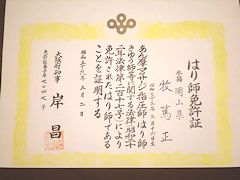 はり師免許証
本籍 岡山県
牧 篤正
あん摩マツサージ指圧師、はり師、
きゆう師等に関する法律(昭和二十
二年法律第二百十七号)により
免許されたはり師である
ことを証明する
昭和五十九年五月二日
大阪府知事 岸 昌